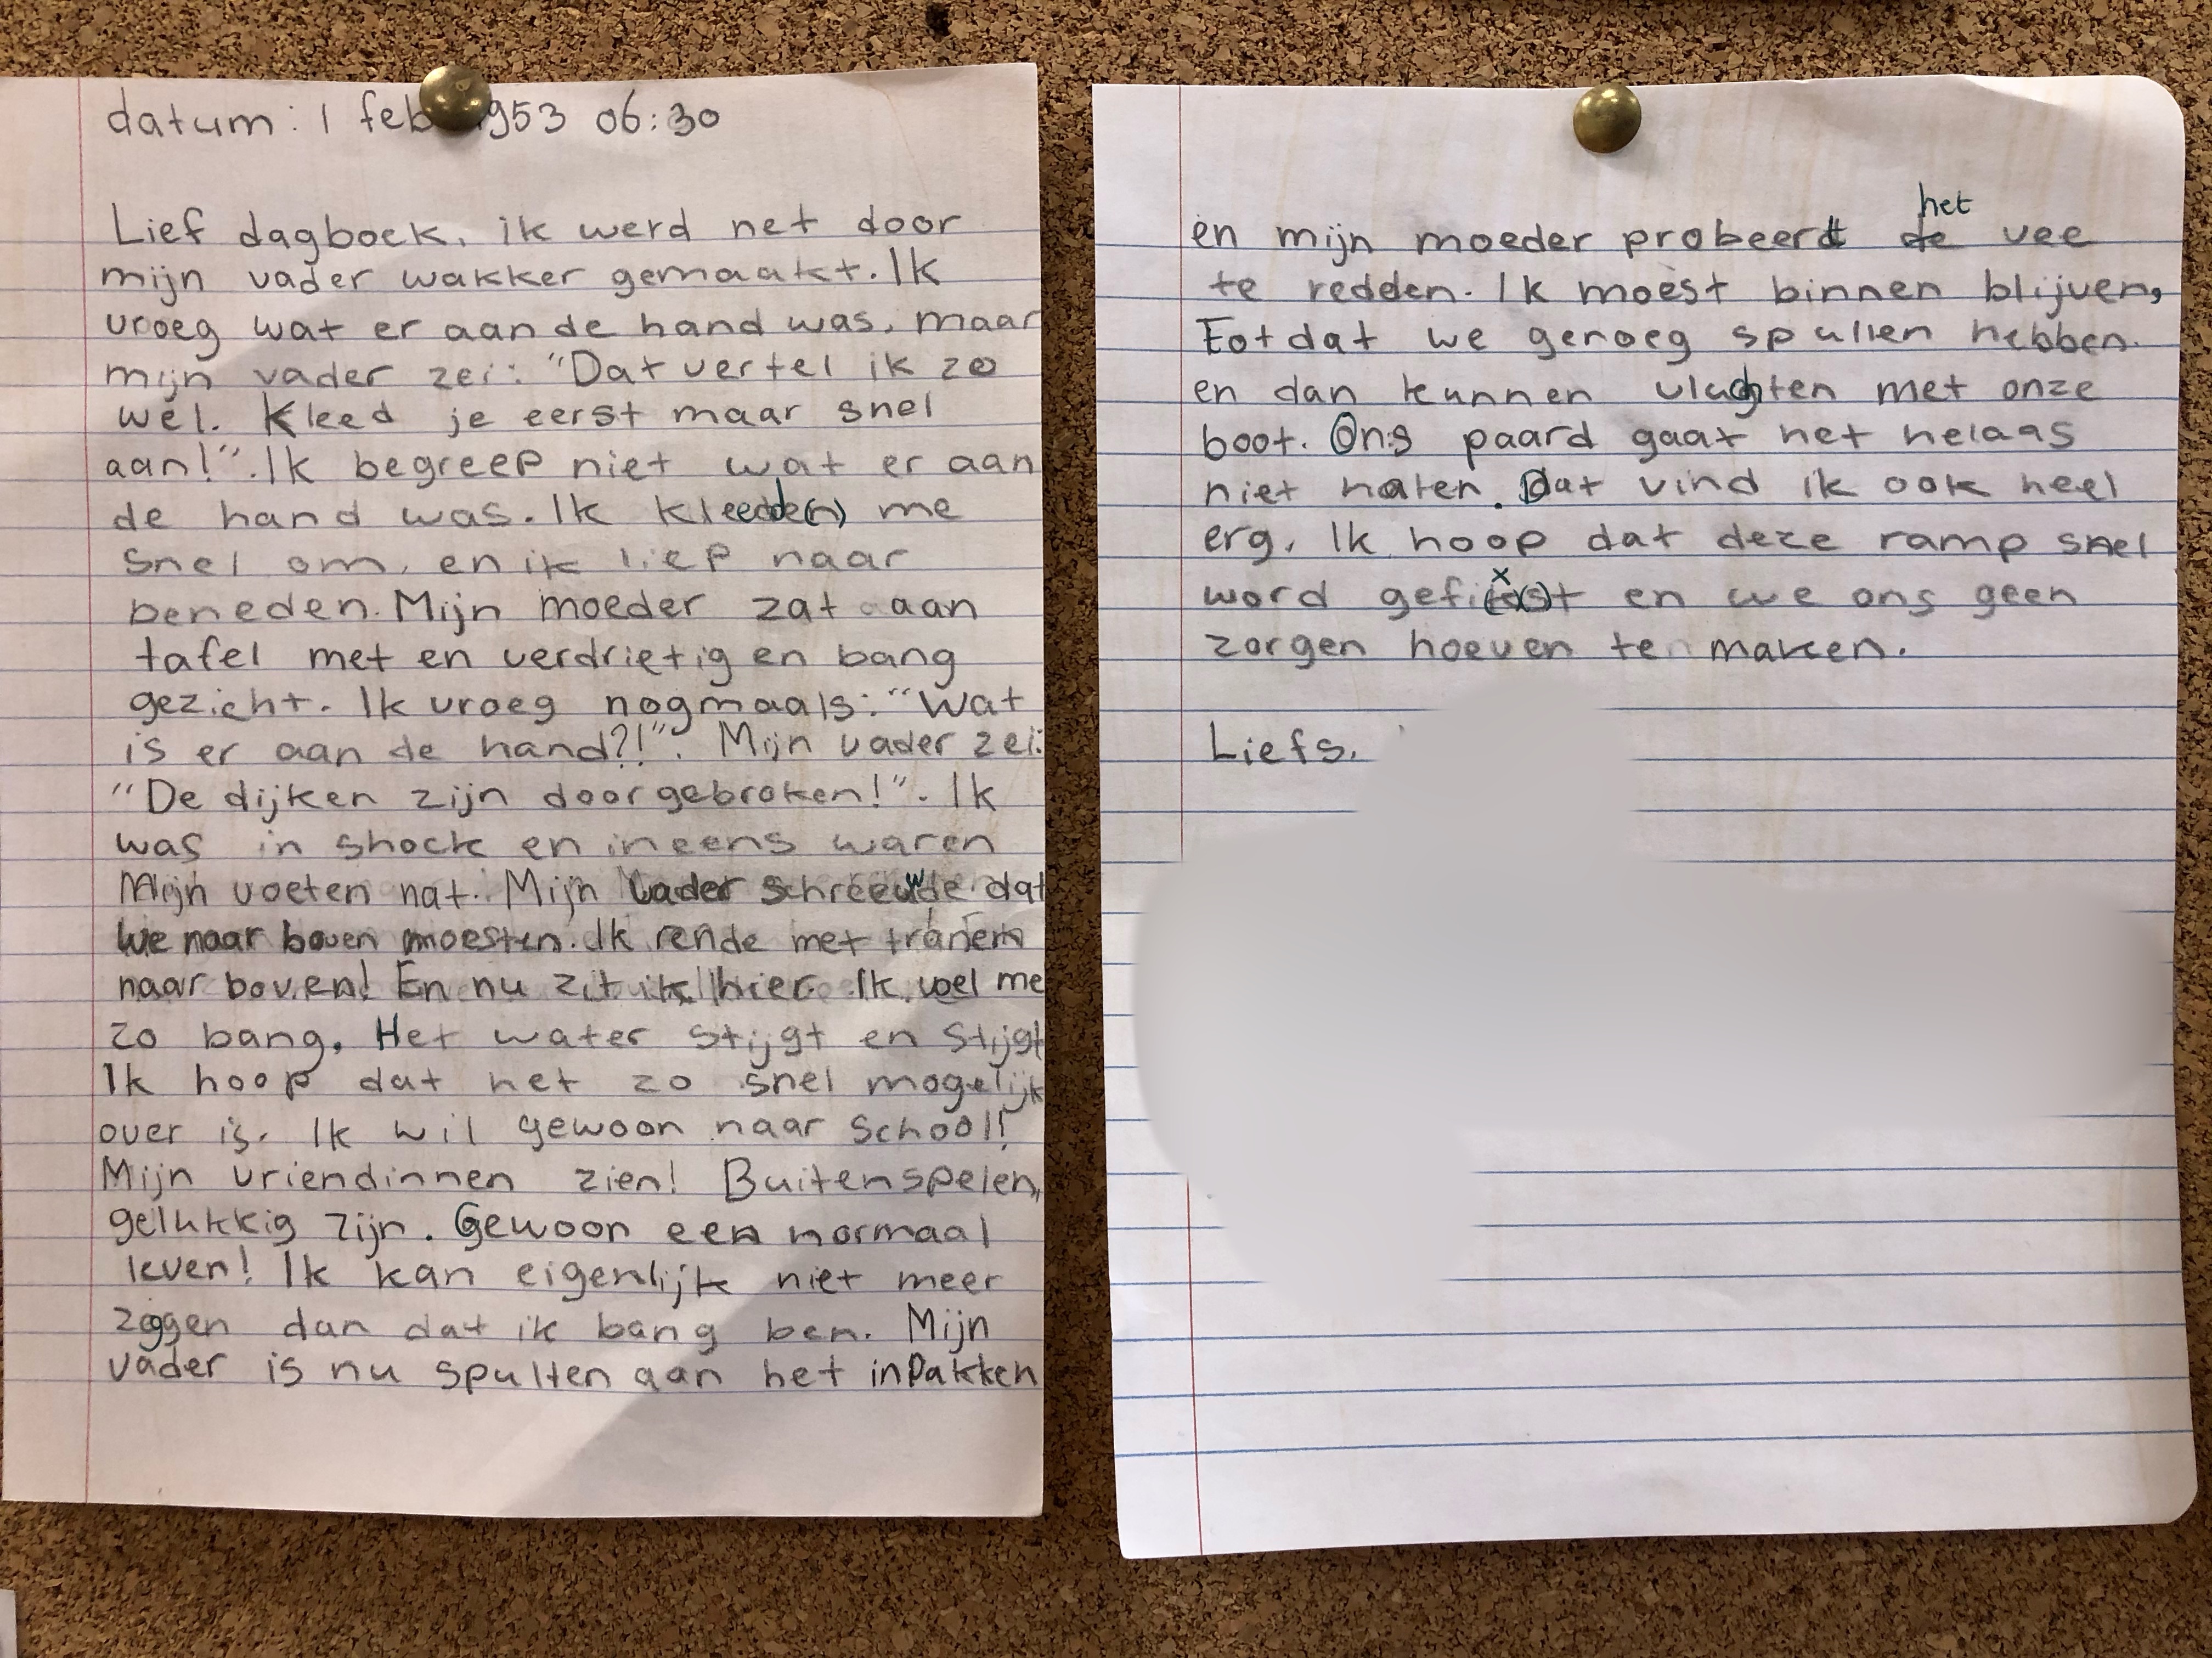 datum: 1 feb 1953 06:30
Lief dagboek, ik werd net door
mijn vader wakker gemaakt. Ik
vroeg wat er aan de hand was, maar
mijn vader zei: "Dat vertel ik zo
wel. Kleed je eerst maar snel
aan!". Ik begreep niet wat er aan
de hand was. Ik kleedde(n) me
snel om, en ik liep naar
beneden. Mijn moeder zat aan
tafel met en verdrietig en bang
gezicht. Ik vroeg nogmaals: "Wat
is er aan de hand?!". Mijn vader zei:
"De dijken zijn doorgebroken!". Ik
was in shock en ineens waren
Mijn voeten nat. Mijn vader schreeuwde dat
we naar boven moesten. Ik rende met tranen
naar boven! En nu zit ik hier. Ik voel me
zo bang. Het water stijgt en stijgt
Ik hoop dat het zo snel mogelijk
over is. Ik wil gewoon naar school!
Mijn vriendinnen zien! Buitenspelen,
gelukkig zijn. Gewoon een normaal
leven! Ik kan eigenlijk niet meer
zeggen dan dat ik bang ben. Mijn
vader is nu spullen aan het inpakken
en mijn moeder probeert de het vee
te redden. Ik moest binnen blijven,
totdat we genoeg spullen hebben.
en dan kunnen vluchten met onze
boot. Ons paard gaat het helaas
niet halen. Dat vind ik ook heel
erg. Ik hoop dat deze ramp snel
word en we ons geen
zorgen hoeven te maken.
Liefs,